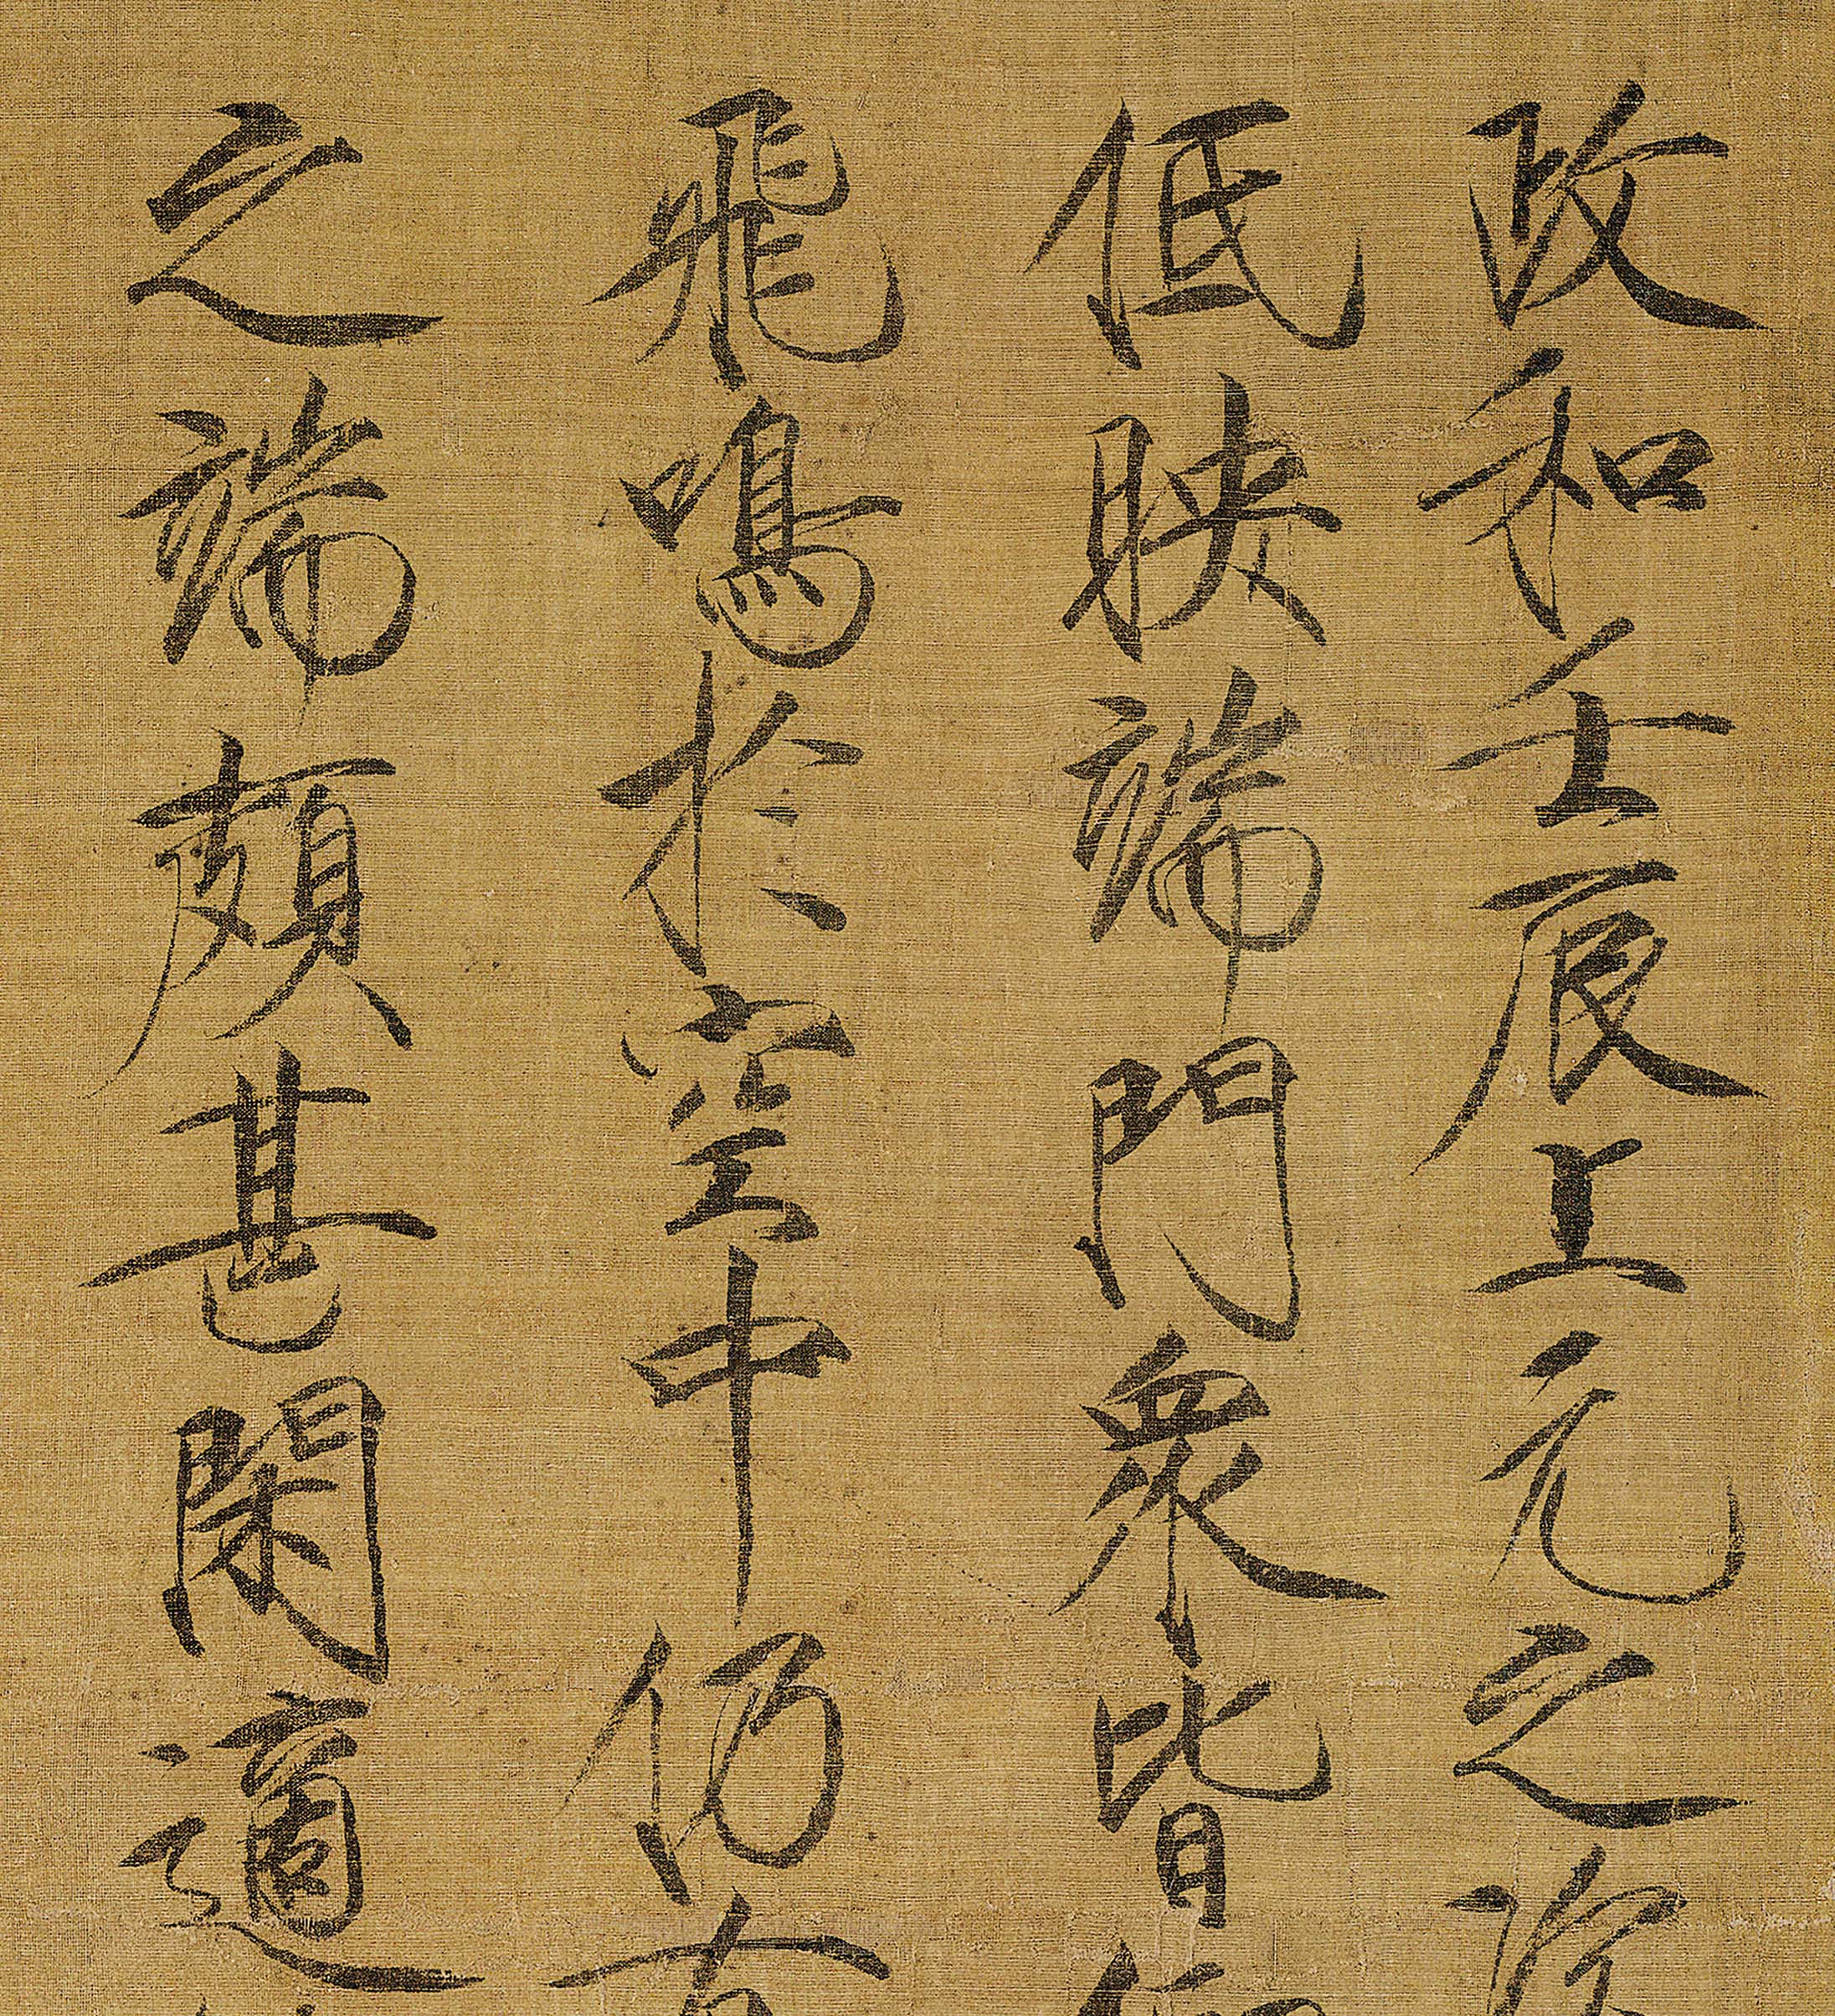 政和壬辰上元之次
低映端門衆皆仰
飛鳴於空中仍有
之端頗甚閑適